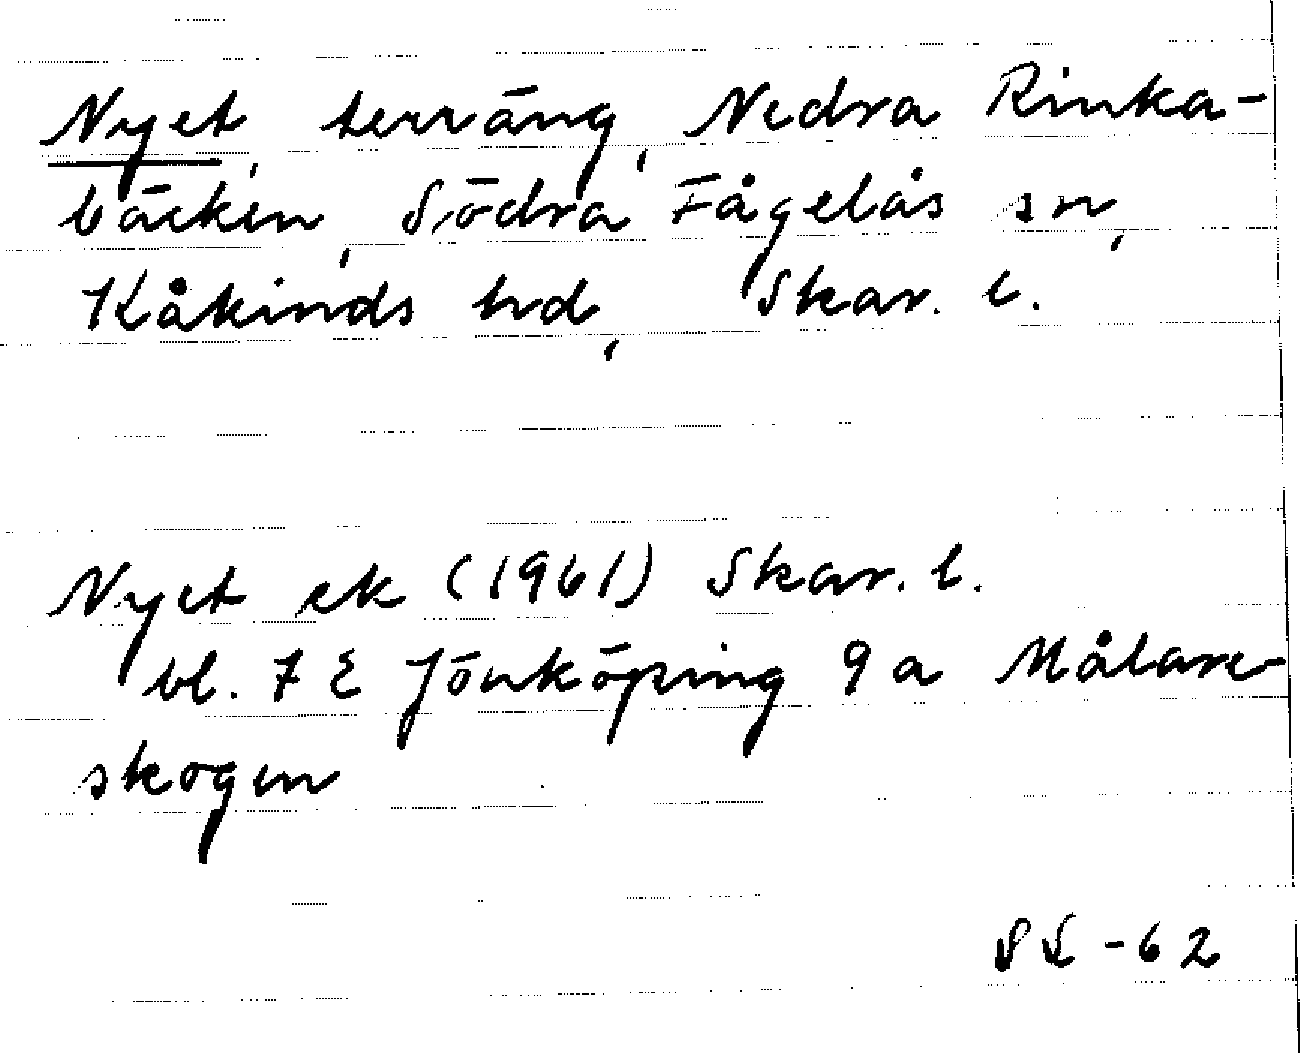 Nyet, terräng, Nedra Rinka-
bäcken, Södra Fågelås sn,
Kåkinds hd, Skar. l.
Nyet ek (1961) Skar. l.
bl. 7 E Jönköping 9 a Målare-
skogen
SL -62